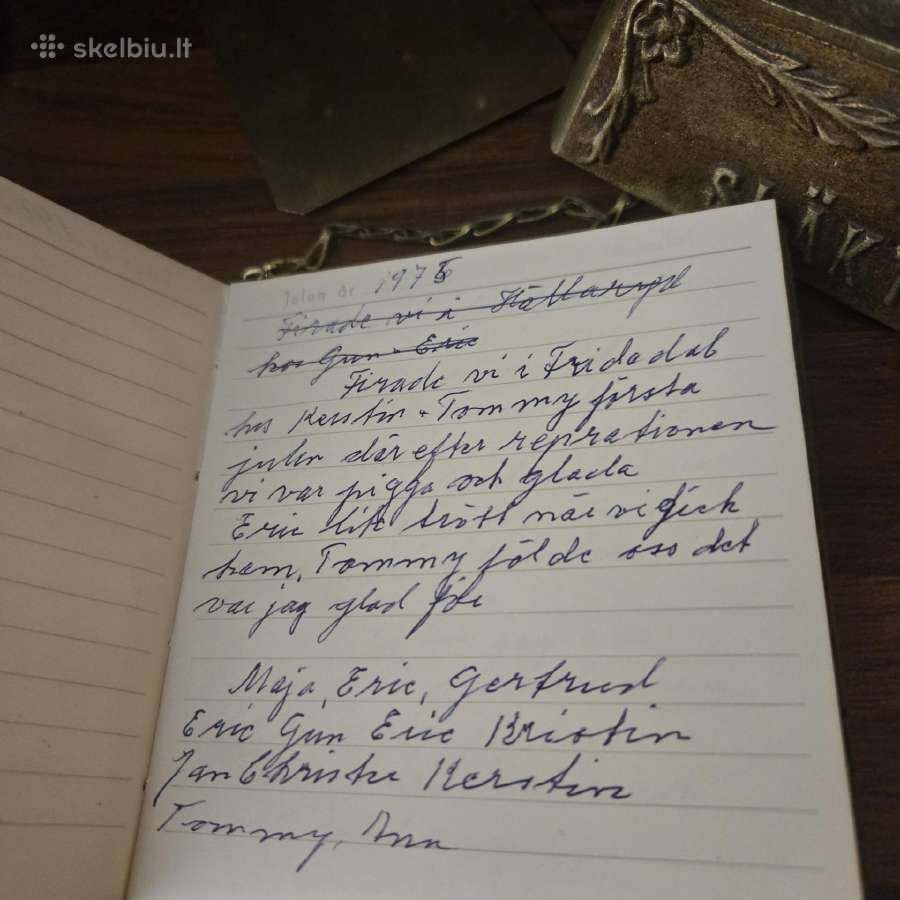 skelbiu.lt
Julen år 1975
Firade vi i Hållaryd
hos Gun - Eric
Firade vi i Fridadal
hos Kerstin + Tommy första
julen där efter reprationen
vi var pigga och glada
Eric lite trött när vi gick
hem, Tommy följde oss det
var jag glad för
Maja, Eric, Gertrud
Eric Gun Eric Kristin
Jan Christer Kerstin
Tommy, Ann